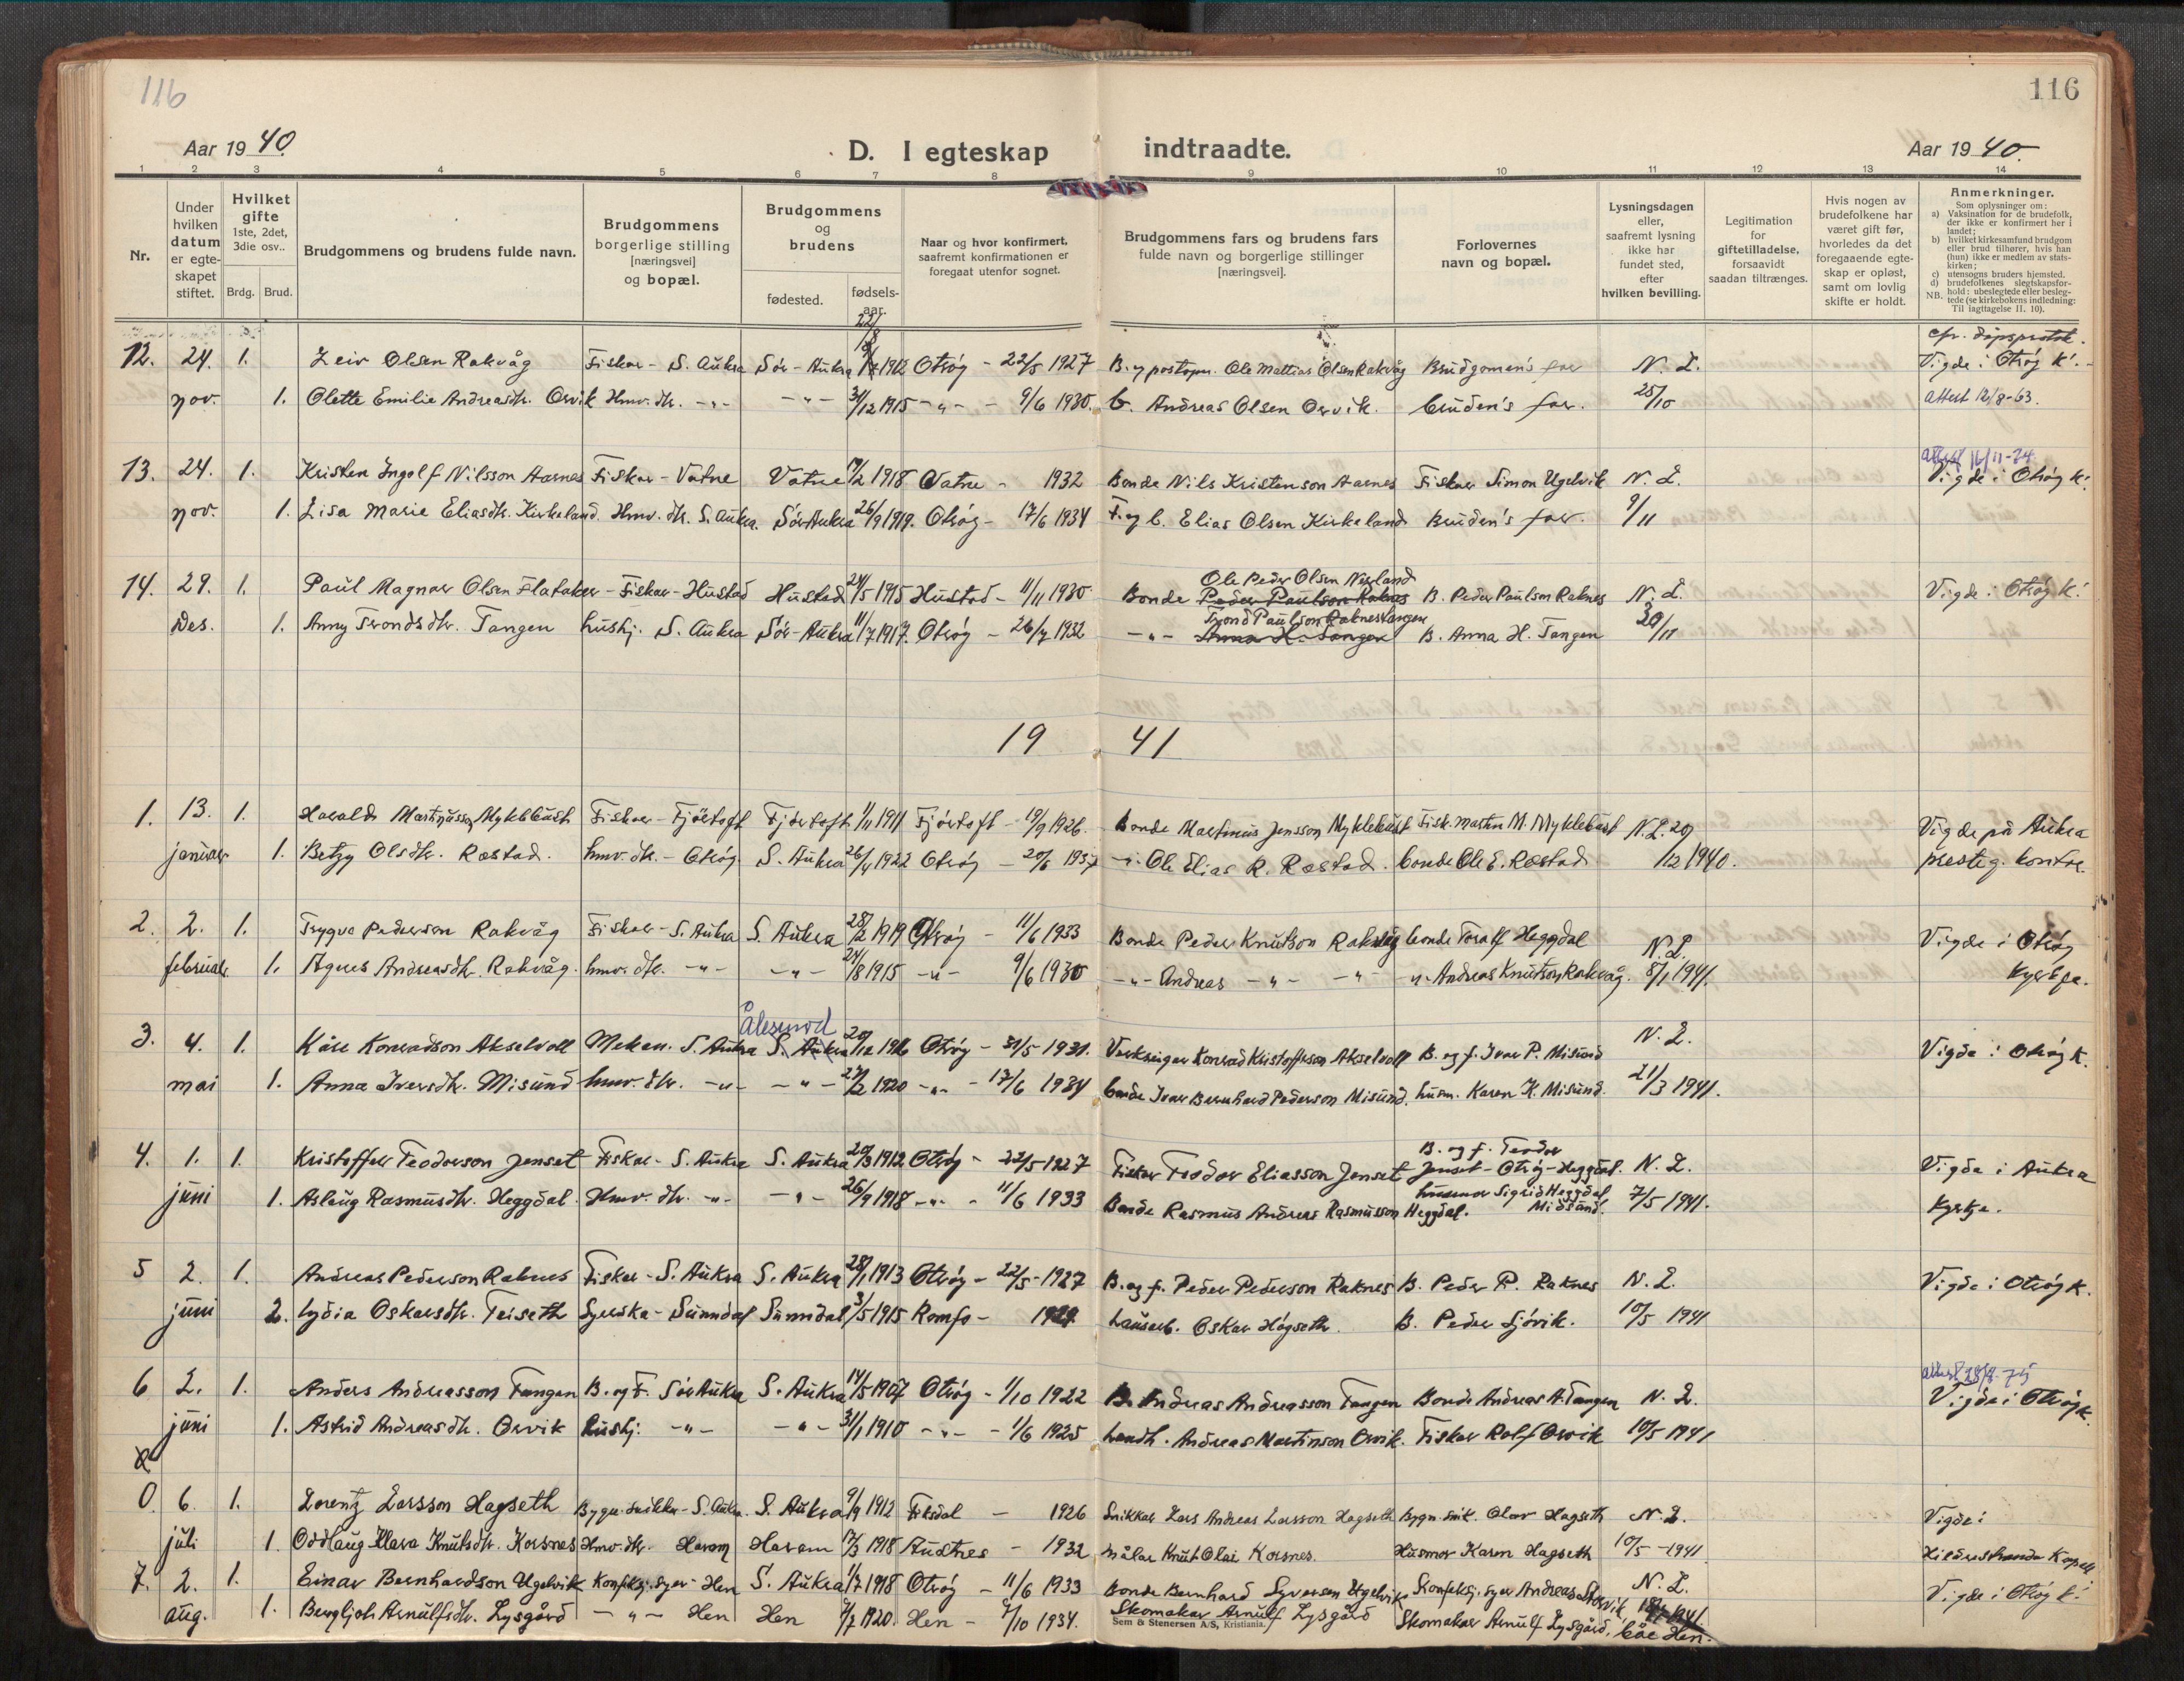 116
116
Aar 1940.
D. I egteskap indtraadte.
Aar 1940.
1 2 3 4 5 6 7 8 9 10 11 12 13 14
Nr.
Under hvilken datum er egteskapet stiftet.
Hvilket gifte 1ste, 2det, 3die osv..
Brdg. Brud.
Brudgommens og brudens fulde navn.
Brudgommens borgerlige stilling [næringsvei] og bopæl.
Brudgommens og brudens
fødested.
fødselsaar.
Naar og hvor konfirmert, saafremt konfirmationen er foregaat utenfor sognet.
Brudgommens fars og brudens fars fulde navn og borgerlige stillinger [næringsvei].
Forlovernes navn og bopæl.
Lysningsdagen eller, saafremt lysning ikke har fundet sted, efter hvilken bevilling.
Legitimation for giftetilladelse, forsaavidt saadan tiltrænges.
Hvis nogen av brudefolkene har været gift før, hvorledes da det foregaaende egteskap er opløst, samt om lovlig skifte er holdt.
Anmerkninger.
Som oplysninger om:
a) Vaksination for de brudefolk, der ikke er konfirmert her i landet;
b) hvilket kirkesamfund brudgom eller brud tilhører, hvis han (hun) ikke er medlem av statskirken;
c) utensogns bruders hjemsted.
d) brudefolkenes slegtskapsforhold: ubeslegtede eller beslegtede (se kirkebokens indledning: Til iagttagelse II. 10).
NB.
cfr. dåpsprotok.
12. 24. 1. Leiv Olsen Rakvåg Fiskar - S. Aukra Sør-Aukra 22/8 1912 Otrøy - 22/5 1927 B. og postopn. Ole Mattias Olsen Rakvåg Brudgomen's far N. L. Vigde i Otrøy k.
nov. 1. Olette Emilie Andreasdtr. Orvik Hmv. dtr. -"- -"- 31/12 1915 -"- - 9/6 1930. b. Andreas Olsen Orvik. bruden's far. 25/10 attest 12/8-63.
attest 14/11-74
13. 24. 1. Kristen Ingolf Nilsson Aarnes Fiskar - Vatne Vatne 19/2 1918 Vatne - 1932 Bonde Nils Kristenson Aarnes Fiskar Simon Ugelvik N. L. Vigde i Otrøy k.
nov. 1. Lisa Marie Eliasdtr. Kirkeland Hmv. dtr. S. Aukra. Sør Aukra 26/9 1919. Otrøy - 17/6 1934 F. og b. Elias Olsen Kirkeland Bruden's far. 9/11
14. 29. 1. Paul Magnar Olsen Flataker - Fiskar - Hustad Hustad 24/5 1915 Hustad - 11/11 1930 Bonde Peder Paulson Raknes Ole Peder Olsen Nerland B. Peder Paulson Raknes N. L. Vigde i Otrøy k.
des. 1. Anny Trondsdtr. Tangen hushj. S. Aukra Sør-Aukra 11/7 1917. Otrøy - 26/7 1932 -"- Anna H. Tangen Trond Paulson Raknestangen B. Anna H. Tangen 30/11
19 41
1. 13. 1. Harald Martinusson Myklebust Fiskar - Fjörtoft Fjørtoft 1/11 1911 Fjørtoft - 19/9 1926. Bonde Martinus Jensson Myklebust Fisk. Martin M. Myklebust N. L. 20/12 1940. Vigde på Aukra
januar 1. Betzy Olsdtr. Røstad. hmv. dtr. - Otrøy S. Aukra 26/4 1922 Otrøy - 20/6 1937 -"- Ole Elias R. Røstad. bonde Ole E. Røstad presteg. kontor.
2. 2. 1. Trygve Pederson Rakvåg Fiskar - S. Aukra S. Aukra 28/2 1919 Otrøy - 11/6 1933 Bonde Peder Knutson Rakvåg bonde Toralf Heggdal N. L. Vigde i Otrøy
februar 1. Agnes Andreasdtr. Rakvåg. hmv. dtr. -"- -"- 24/8 1915 -"- 9/6 1930 -"- Andreas -"- -"- -"- Andreas Knutson Rakvåg. 8/1 1941. Kyrkje.
Ålesund
3. 4. 1. Kåre Konradson Akselvoll Mekan. S. Aukra S. Aukra 20/12 1916 Otrøy - 31/5 1931. Verkseigar Konrad Kristofferson Akselvoll B. og f. Ivar P. Misund N. L. Vigde i Otrøy k.
mai 1. Anna Iversdtr. Misund hmv. dtr. -"- -"- 27/2 1920 -"- - 17/6 1934 bonde Ivar Bernhard Pederson Misund. husm. Karen K. Misund. 21/3 1941.
4. 1. 1. Kristoffer Teodorson Jenset Fiskar - S. Aukra S. Aukra 20/3 1912 Otrøy - 22/5 1927 Fiskar Teodor Eliasson Jenset B. og f. Teodor Jenset - Otrøy - Heggdal. N. L. Vigde i Aukra
juni 1. Aslaug Rasmusdtr. Heggdal. Hmv. dtr. -"- -"- 26/9 1918 -"- - 11/6 1933 Bonde Rasmus Andreas Rasmusson Heggdal. husmor Sigrid Heggdal Midsund. 7/5 1941. Kyrkje.
5 2. 1. Andreas Pederson Raknes Fiskar - S. Aukra S. Aukra 28/1 1913 Otrøy - 22/5 - 1927 B. og f. Peder Pederson Raknes B. Peder P. Raknes N. L. Vigde i Otrøy k.
juni 2. Lydia Oskarsdtr. Teiseth Syerska - Sunndal Sunndal 3/5 1915 Romfo - 1929 Lausarb. Oskar Høgseth. B. Peder Sjøvik. 10/5 1941
attest 28/8-75
6 2. 1. Anders Andreasson Tangen B. og F. Sør Aukra S. Aukra 14/5 1907 Otrøy - 1/10 1922 B. Andreas Andreasson Tangen Bonde Andreas A. Tangen N. L. Vigde i Otrøy k.
juni 1. Astrid Andreasdtr. Orvik hushj. -"- -"- 31/1 1910 -"- - 1/6 1925 Landh. Andreas Martinson Orvik. Fiskar Rolf Orvik 10/5 1941
0. 6. 1. Lorentz Larsson Hagseth Bygn. snikkar - S. Aukra. S. Aukra 9/9 1912 Fiksdal - 1926 Snikkar Lars Andreas Larsson Hagseth Bygn. snik. Olav Hagseth N. L. Vigde i
juli 1. Oddlaug Klara Knutsdtr. Korsnes Hmv. dtr. Haram Haram 17/3 1918 Austnes - 1932 målar Knut Olai Korsnes. Husmor Karen Hagseth 10/5 - 1941 Hildrestranda Kapell
7. 2. 1. Einar Bernhardson Ugelvik Konfeksj. syer - Hen S. Aukra 1/7 1918 Otrøy - 11/6 1933 Bonde Bernhard Syversen Ugelvik Konfeksj. syer Andreas N. L. Vigde i Otrøy k.
aug. 1. Bergljot Arnulfsdtr. Lysgård -"- Hen Hen 7/7 1920. Hen - 7/10 1934. Skomakar Arnulf Lysgård Skomakar Arnulf Lysgård, båe Hen.
Sem & Stenersen A/S, Kristiania.